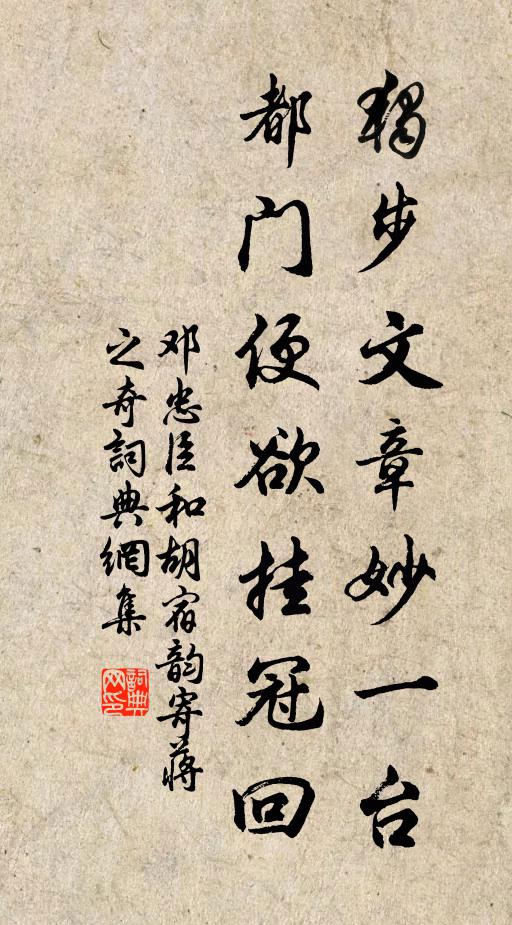 獨步文章妙一台
都门便欲挂冠回
邓忠臣和胡宿韵寄蔣
之奇詞典網集
詞典
网印